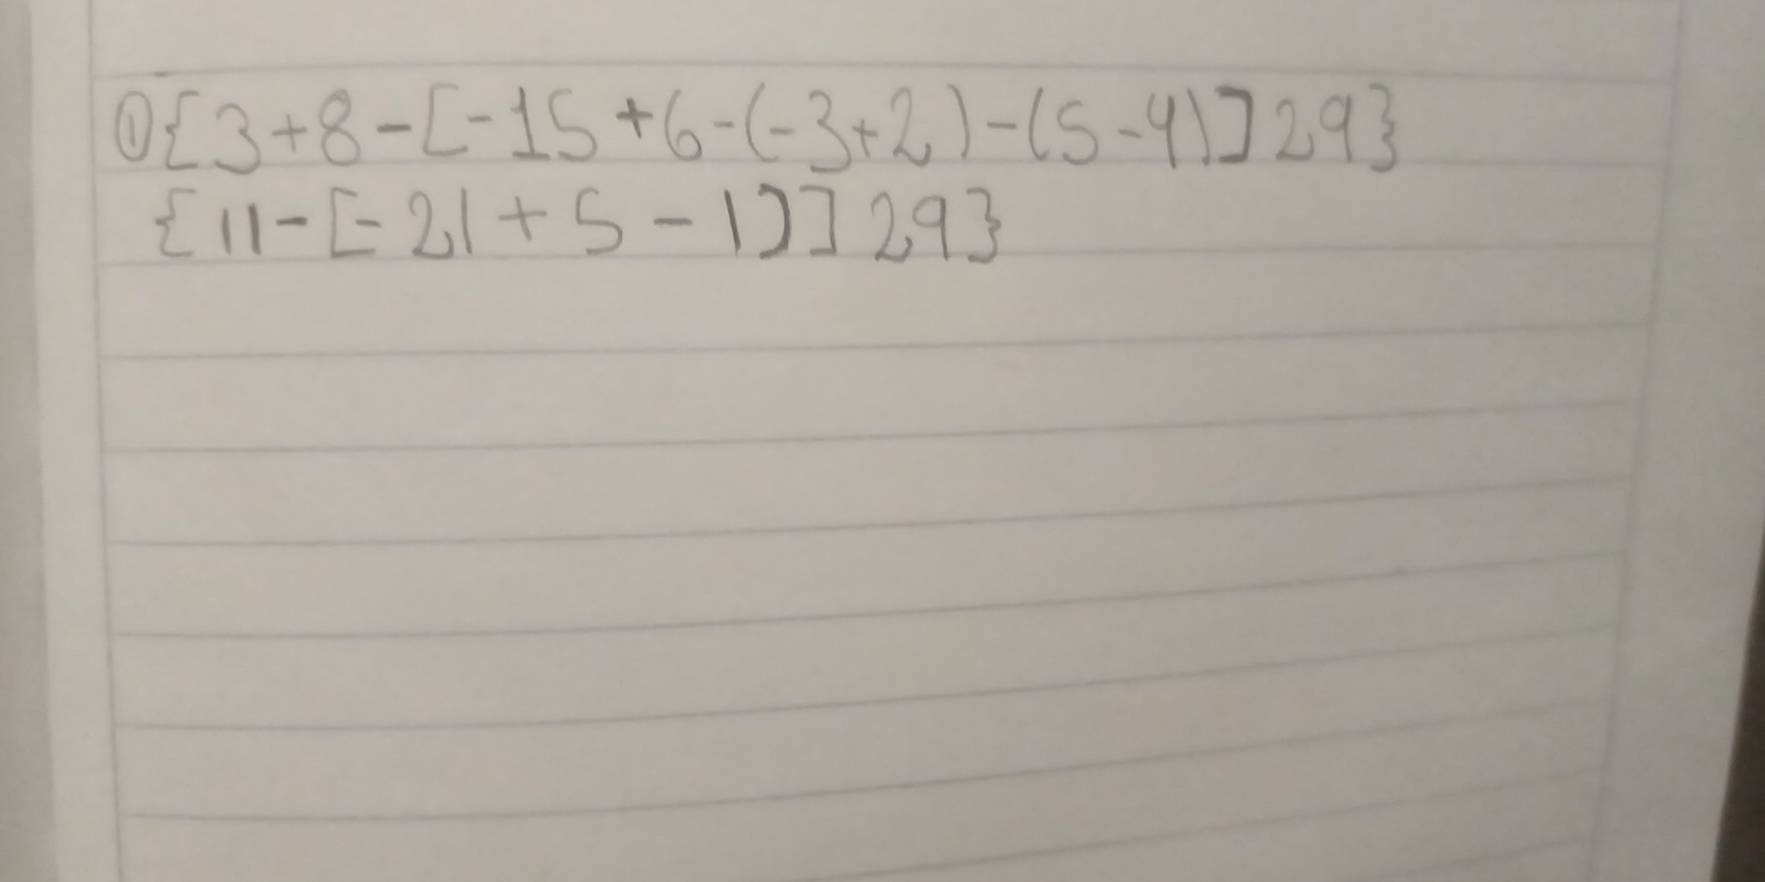 ①{3+8-[-15+6-(-3+2)-(5-4)]29}
{11-[-21+5-1)]29}